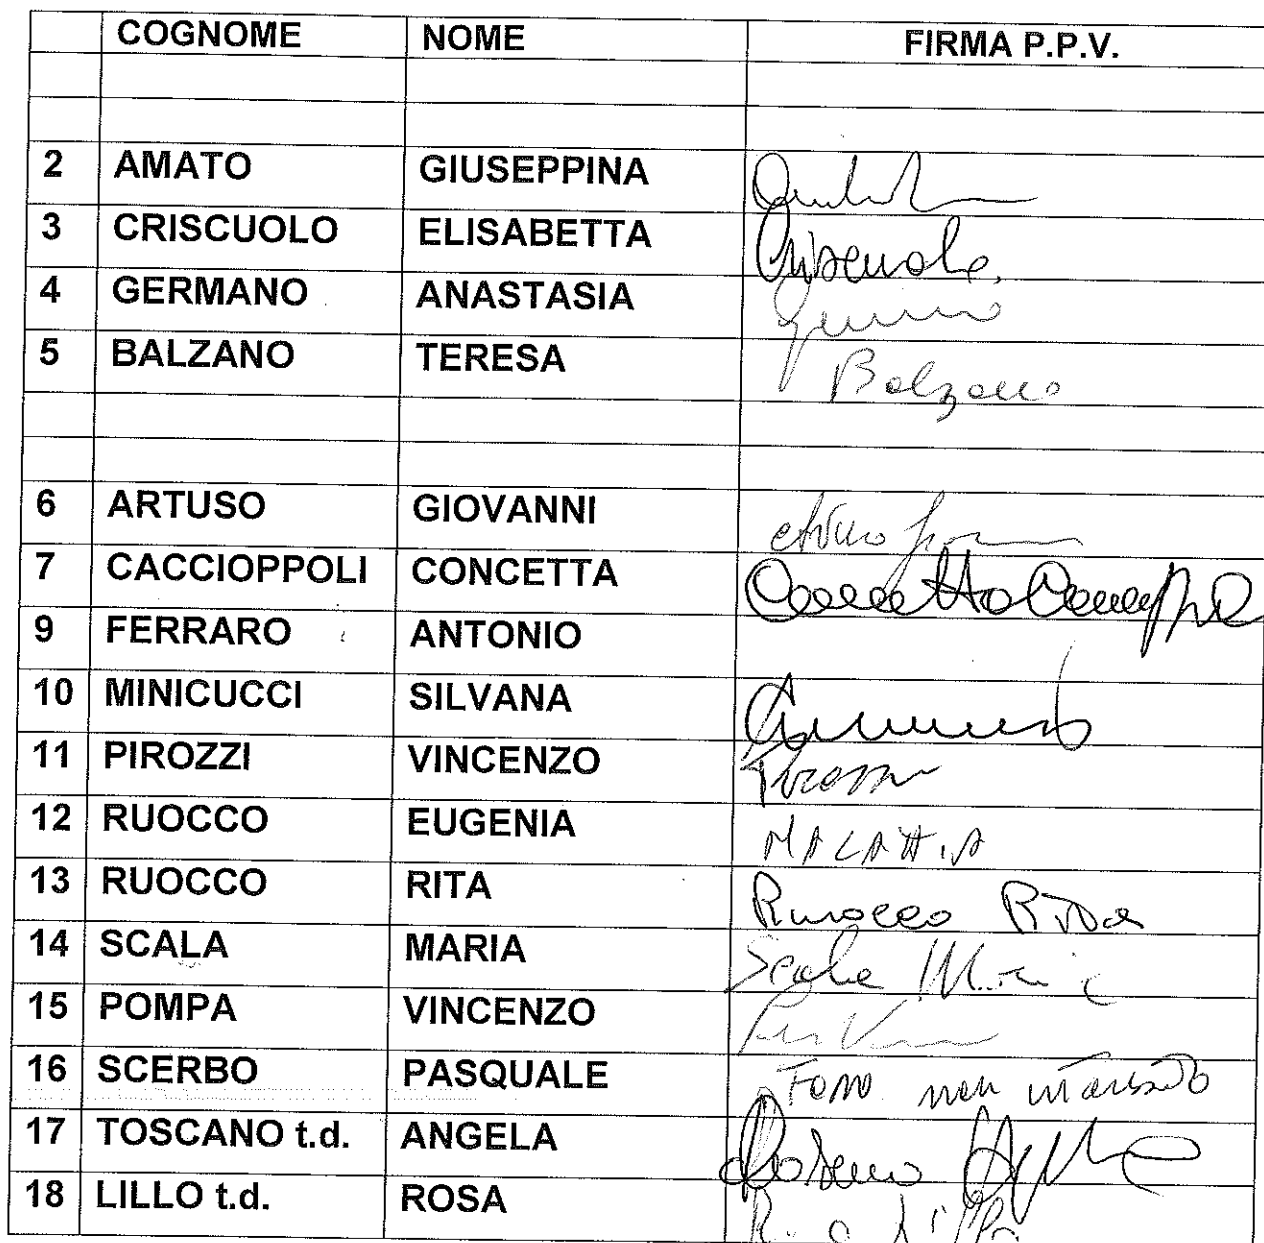 COGNOME NOME FIRMA P.P.V.
2 AMATO GIUSEPPINA
3 CRISCUOLO ELISABETTA Criscuolo
4 GERMANO ANASTASIA
5 BALZANO TERESA Balzano
6 ARTUSO GIOVANNI
7 CACCIOPPOLI CONCETTA Concetta
9 FERRARO ANTONIO
10 MINICUCCI SILVANA
11 PIROZZI VINCENZO Pirozzi
12 RUOCCO EUGENIA MALATTIA
13 RUOCCO RITA Ruocco Rita
14 SCALA MARIA Scala Maria
15 POMPA VINCENZO
16 SCERBO PASQUALE non
17 TOSCANO t.d. ANGELA
18 LILLO t.d. ROSA